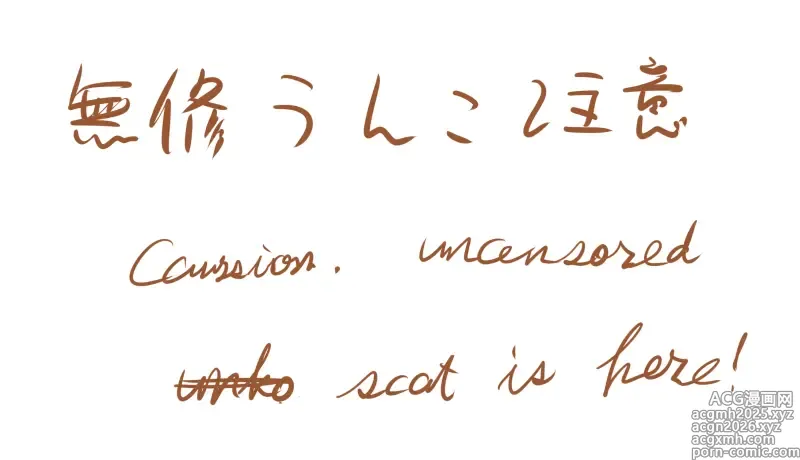 無修うんこ注意
Caussion. uncensored
unko scat is here!
ACG漫画网
acgmh2025.xyz
acgn2026.xyz
acgxmh.com
porn-comic.com